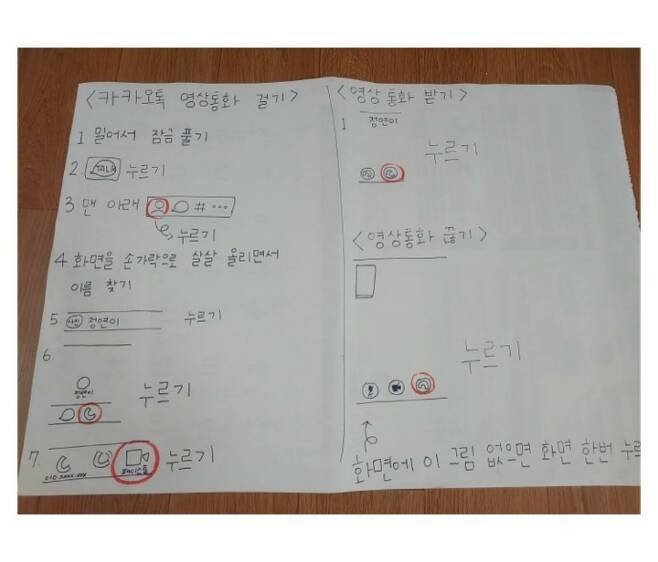 <카카오톡 영상통화 걸기>
1 밀어서 잠금 풀기
2. TALK 누르기
3. 맨 아래 # ...
누르기
4 화면을 손가락으로 살살 올리면서
이름 찾기
5 사진 정연이 누르기
6.
정연이
누르기
7. 010.xxxx.xxx 페이스톡 누르기
<영상통화 받기>
1 정연이
누르기
<영상통화 끊기>
누르기
화면에 이 그림 없으면 화면 한번 누르